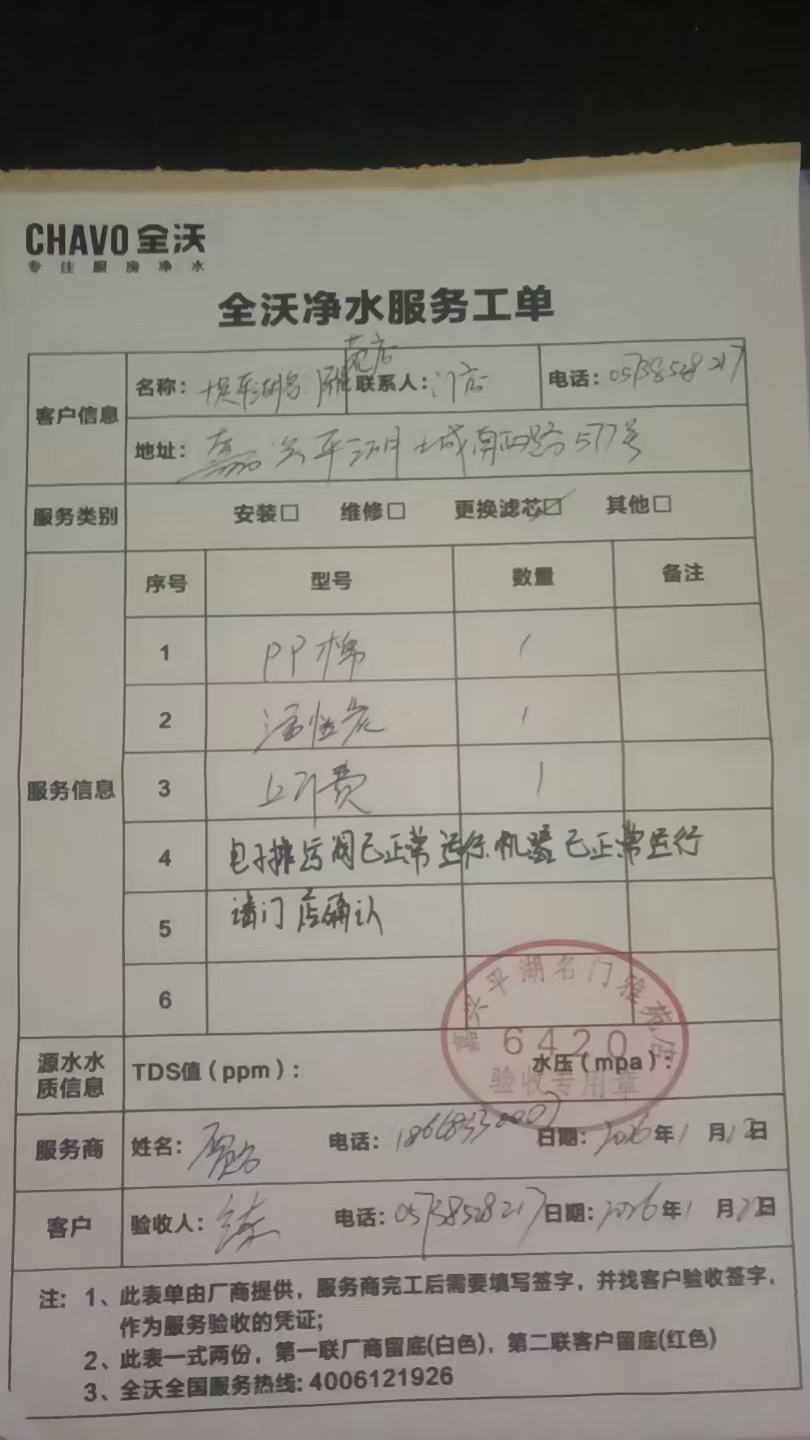 CHAVO 全沃
专注厨房净水
全沃净水服务工单
客户信息
名称: 平湖名雅苑店 联系人: 门店 电话: 05738528217
地址: 嘉兴平湖城南西路577号
服务类别 安装□ 维修□ 更换滤芯☑ 其他□
服务信息
序号 型号 数量 备注
1 PP棉 1
2 活性炭 1
3 上门费 1
4 电子排污阀已正常运行.机器已正常运行
5 请门店确认
6
嘉兴平湖名门雅苑店
6420
验收专用章
源水水质信息 TDS值(ppm): 水压(mpa):
服务商 姓名: 电话: 日期: 2026年1月12日
客户 验收人: 电话: 05738528217 日期: 2026年1月日
注: 1、此表单由厂商提供，服务商完工后需要填写签字，并找客户验收签字，
作为服务验收的凭证;
2、此表一式两份，第一联厂商留底(白色)，第二联客户留底(红色)
3、全沃全国服务热线: 4006121926